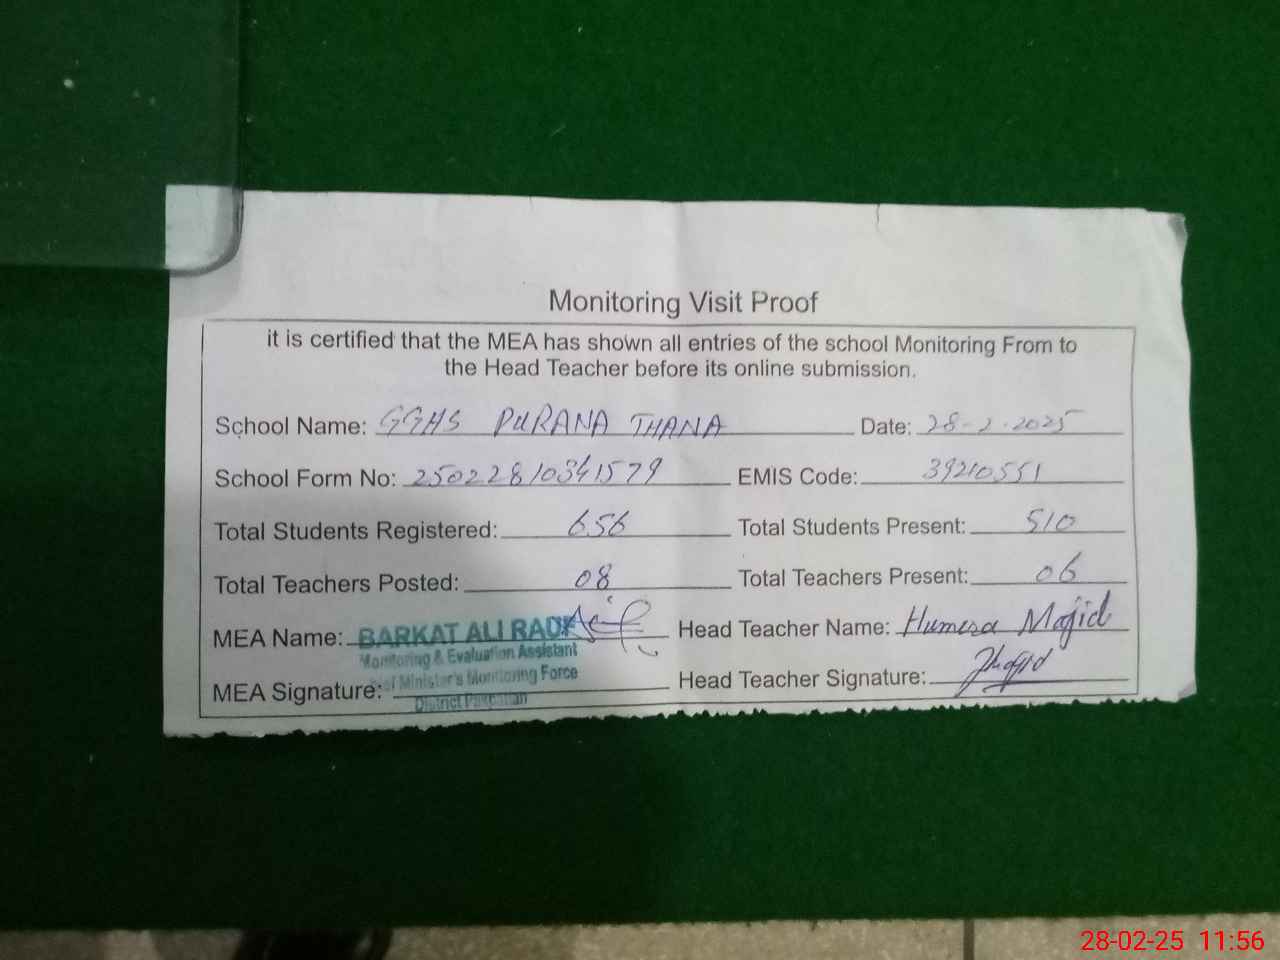 Monitoring Visit Proof
it is certified that the MEA has shown all entries of the school Monitoring From to
the Head Teacher before its online submission.
School Name: GGHS PURANA THANA Date: 28-2-2025
School Form No: 25022810341579 EMIS Code: 39210551
Total Students Registered: 656 Total Students Present: 510
Total Teachers Posted: 08 Total Teachers Present: 06
MEA Name: BARKAT ALI Head Teacher Name: Humera Majid
Monitoring & Evaluation Assistant
Minister's Monitoring Force
MEA Signature: Head Teacher Signature:
District Pakpattan
28-02-25 11:56